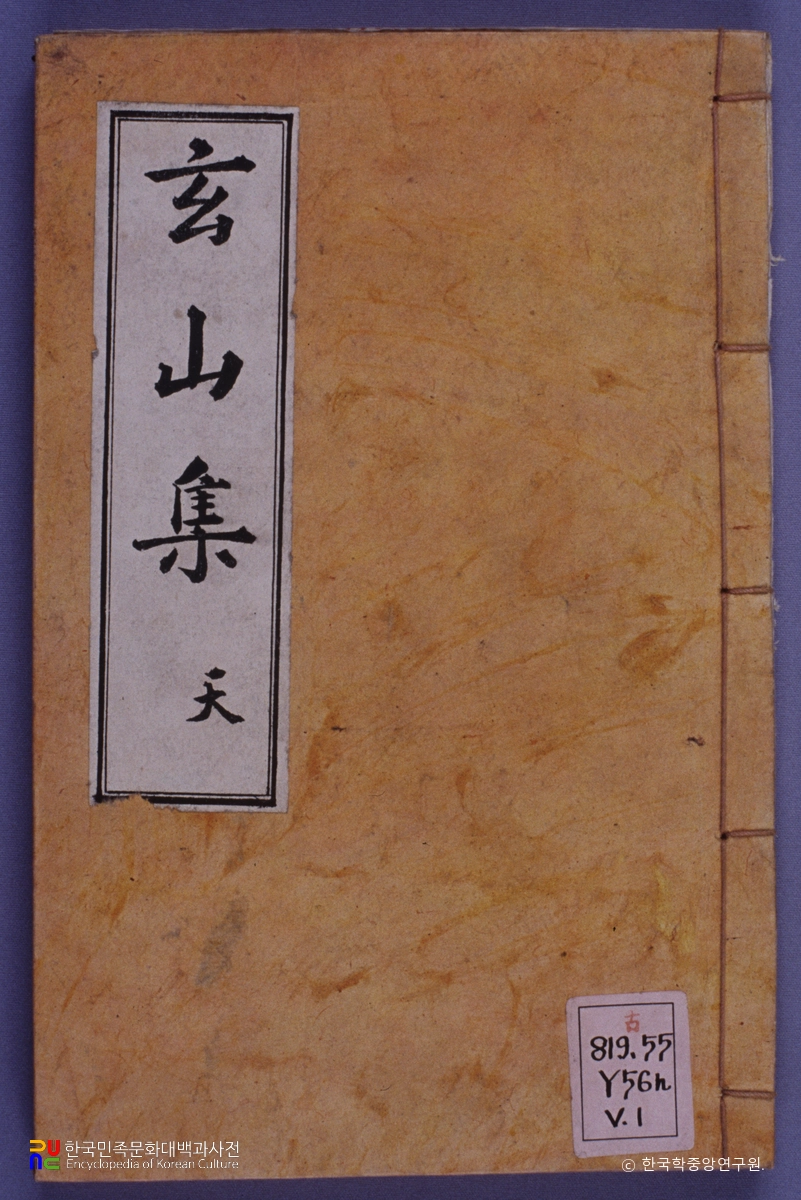 玄山集
天
古
819.55
Y56h
V.1
한국민족문화대백과사전
Encyclopedia of Korean Culture
© 한국학중앙연구원.